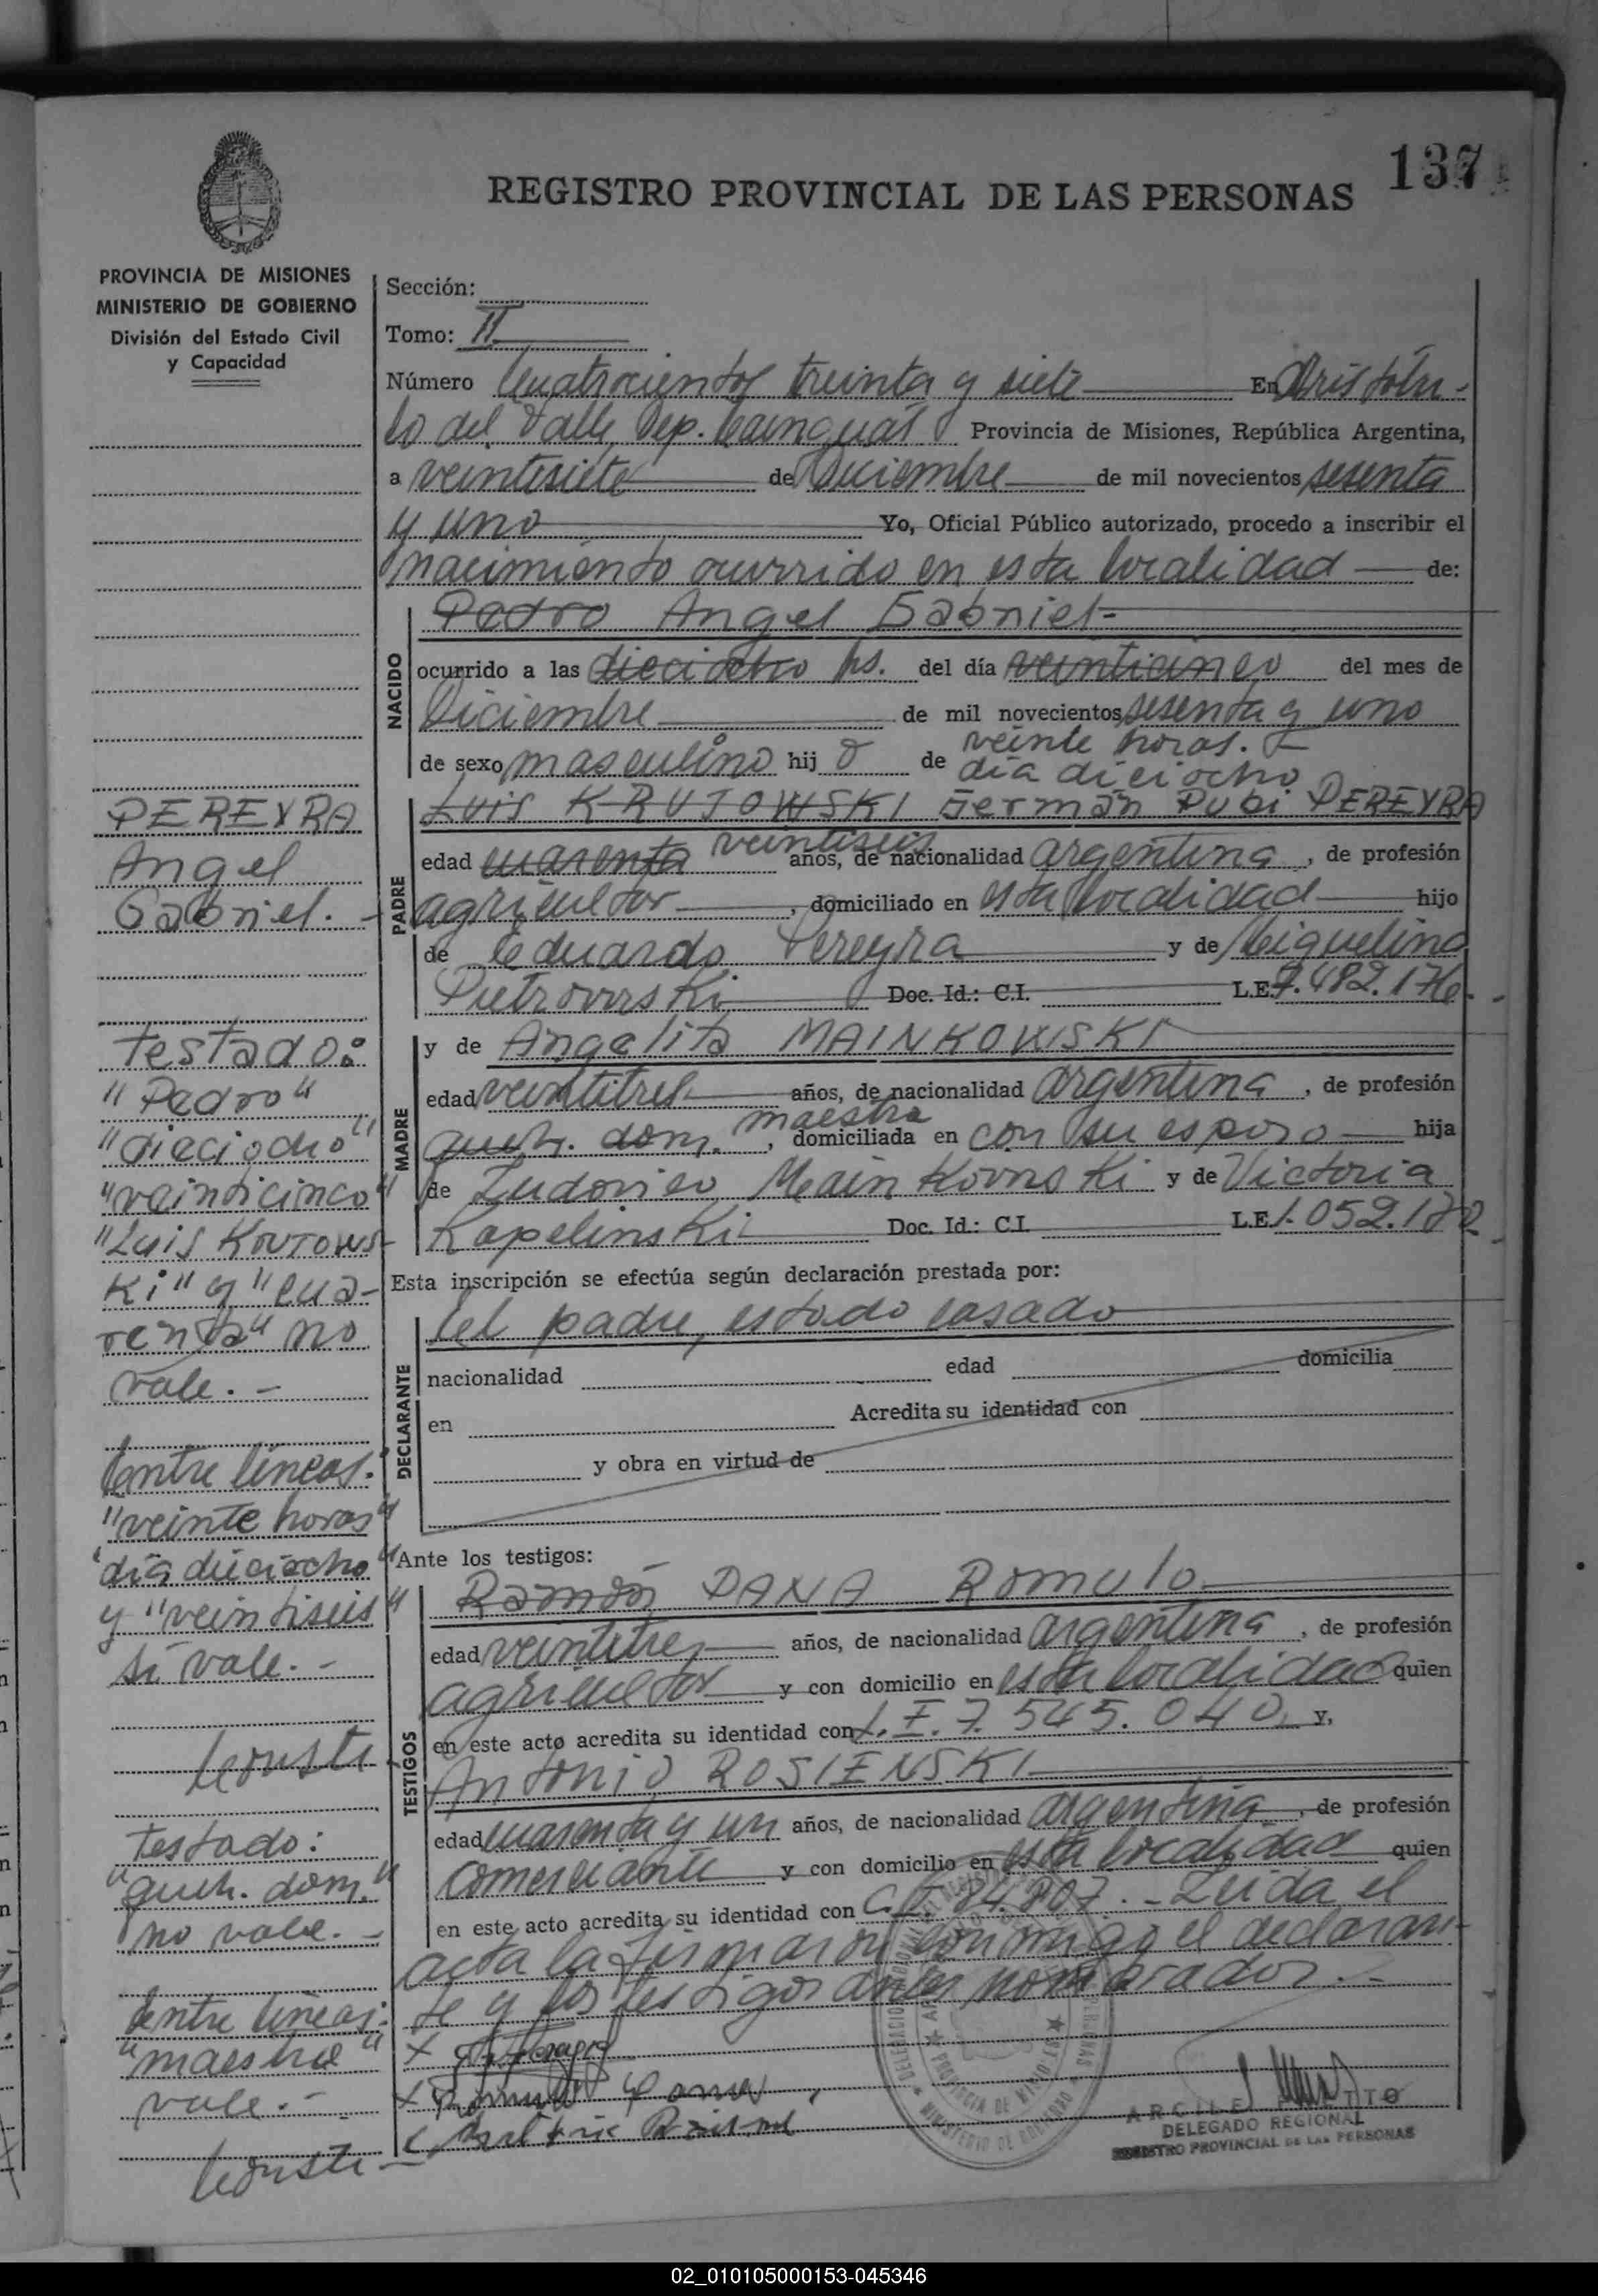 137
REGISTRO PROVINCIAL DE LAS PERSONAS
PROVINCIA DE MISIONES
MINISTERIO DE GOBIERNO
División del Estado Civil
y Capacidad
PEREYRA
Angel
Gabriel.-
Testado:
"Pedro"
"dieciocho"
"veinticinco"
"Luis Krutows-
ki" y "cua-
renta" no
vale.-
Entre líneas:
"veinte horas"
"día dieciocho"
y "veintiseis"
si vale.-
Conste
Testado:
"queh. dom."
no vale.-
Entre líneas:
"maestra"
vale.-
Conste-
Sección:
Tomo: II
Número Cuatrocientos treinta y siete En Aristóbu-
lo del Valle, Dep. Cainguás Provincia de Misiones, República Argentina,
a veintisiete de Diciembre de mil novecientos sesenta
y uno Yo, Oficial Público autorizado, procedo a inscribir el
nacimiento ocurrido en esta localidad de:
NACIDO
Pedro Angel Gabriel-
ocurrido a las dieciocho hs. del día veinticinco del mes de
Diciembre de mil novecientos sesenta y uno
veinte horas.
de sexo masculino hij o de día dieciocho
PADRE
Luis KRUTOWSKI Germán Rubi PEREYRA
edad cuarenta veintiseis años, de nacionalidad argentina, de profesión
agricultor, domiciliado en esta localidad hijo
de Eduardo Pereyra y de Miguelina
Pietrowski Doc. Id.: C.I. L.E. 7.482.176.-
MADRE
y de Angelita MAINKOWSKI
edad veintitres años, de nacionalidad argentina, de profesión
queh. dom. maestra, domiciliada en con su esposo hija
de Ludovico Mainkowski y de Victoria
Kapelinski Doc. Id.: C.I. L.E. 1.052.170
Esta inscripción se efectúa según declaración prestada por:
DECLARANTE
el padre, estado casado
nacionalidad edad domicilia
en Acredita su identidad con
y obra en virtud de
Ante los testigos:
TESTIGOS
Ramón DANA Romulo
edad veintitres años, de nacionalidad argentina, de profesión
agricultor y con domicilio en esta localidad quien
en este acto acredita su identidad con L.E. 7.545.040. y,
Antonio ROSIENSKI
edad cuarenta y un años, de nacionalidad argentina, de profesión
comerciante y con domicilio en esta localidad quien
en este acto acredita su identidad con C.I. 84.807.- Leida el
acta la firmaron conmigo el declaran-
te y los testigos antes nombrados.-
DELEGADO REGIONAL
REGISTRO PROVINCIAL DE LAS PERSONAS
02_010105000153-045346